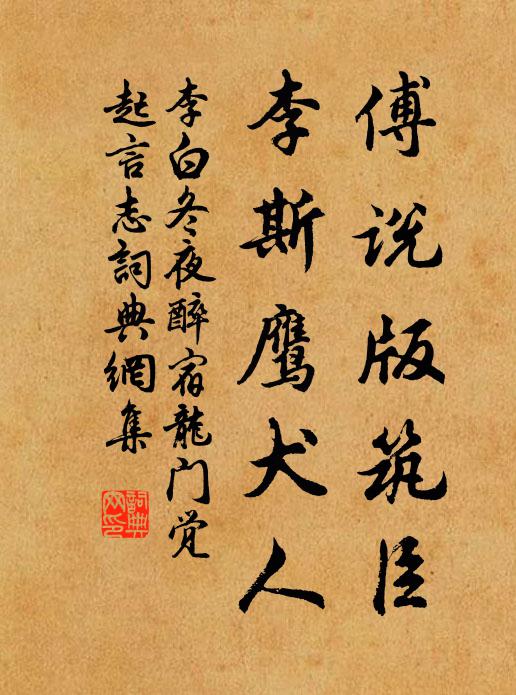 傅说版筑臣
李斯鹰犬人
李白冬夜醉宿龍门觉
起言志詞典網集
詞典网印